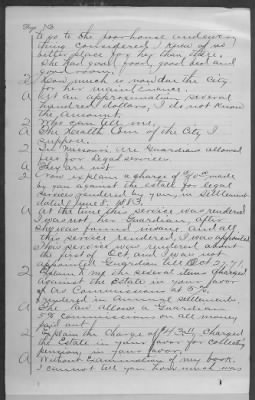 to go to the poorhouse and every
thing considered, I knew of no
better place for her than there,
she had good food, good bed and
good room.
Q How much is now due the City
for her maintenance.
A At an approximation several
hundred dollars, I do not know
the amount.
Q Who can tell me,
A The Health Com of the City I
suppose.
Q In Missouri are Guardians allowed
fees for legal services.
A They are not
Q Now explain a charge of made
by you against the estate for legal
services rendered by you, in settlement
dated June 8.
A At the time this service was rendered
I was not her Guardian, after
she was found insane and all
this service rendered, I was appointed
This service was rendered about
the first of Oct and I was not
appointed Guardian till Oct 27, 79
Q Explain to me the several items charged
against the Estate in your favor
of as Commissions at 5%
rendered in annual settlement.
A The law allows a Guardian
5% commissions on all money
paid out.
Q Explain the charge of charged
the Estate in your favor for collecting
pension, in your favor.
A Without Examination of my book,
I cannot tell you how much was